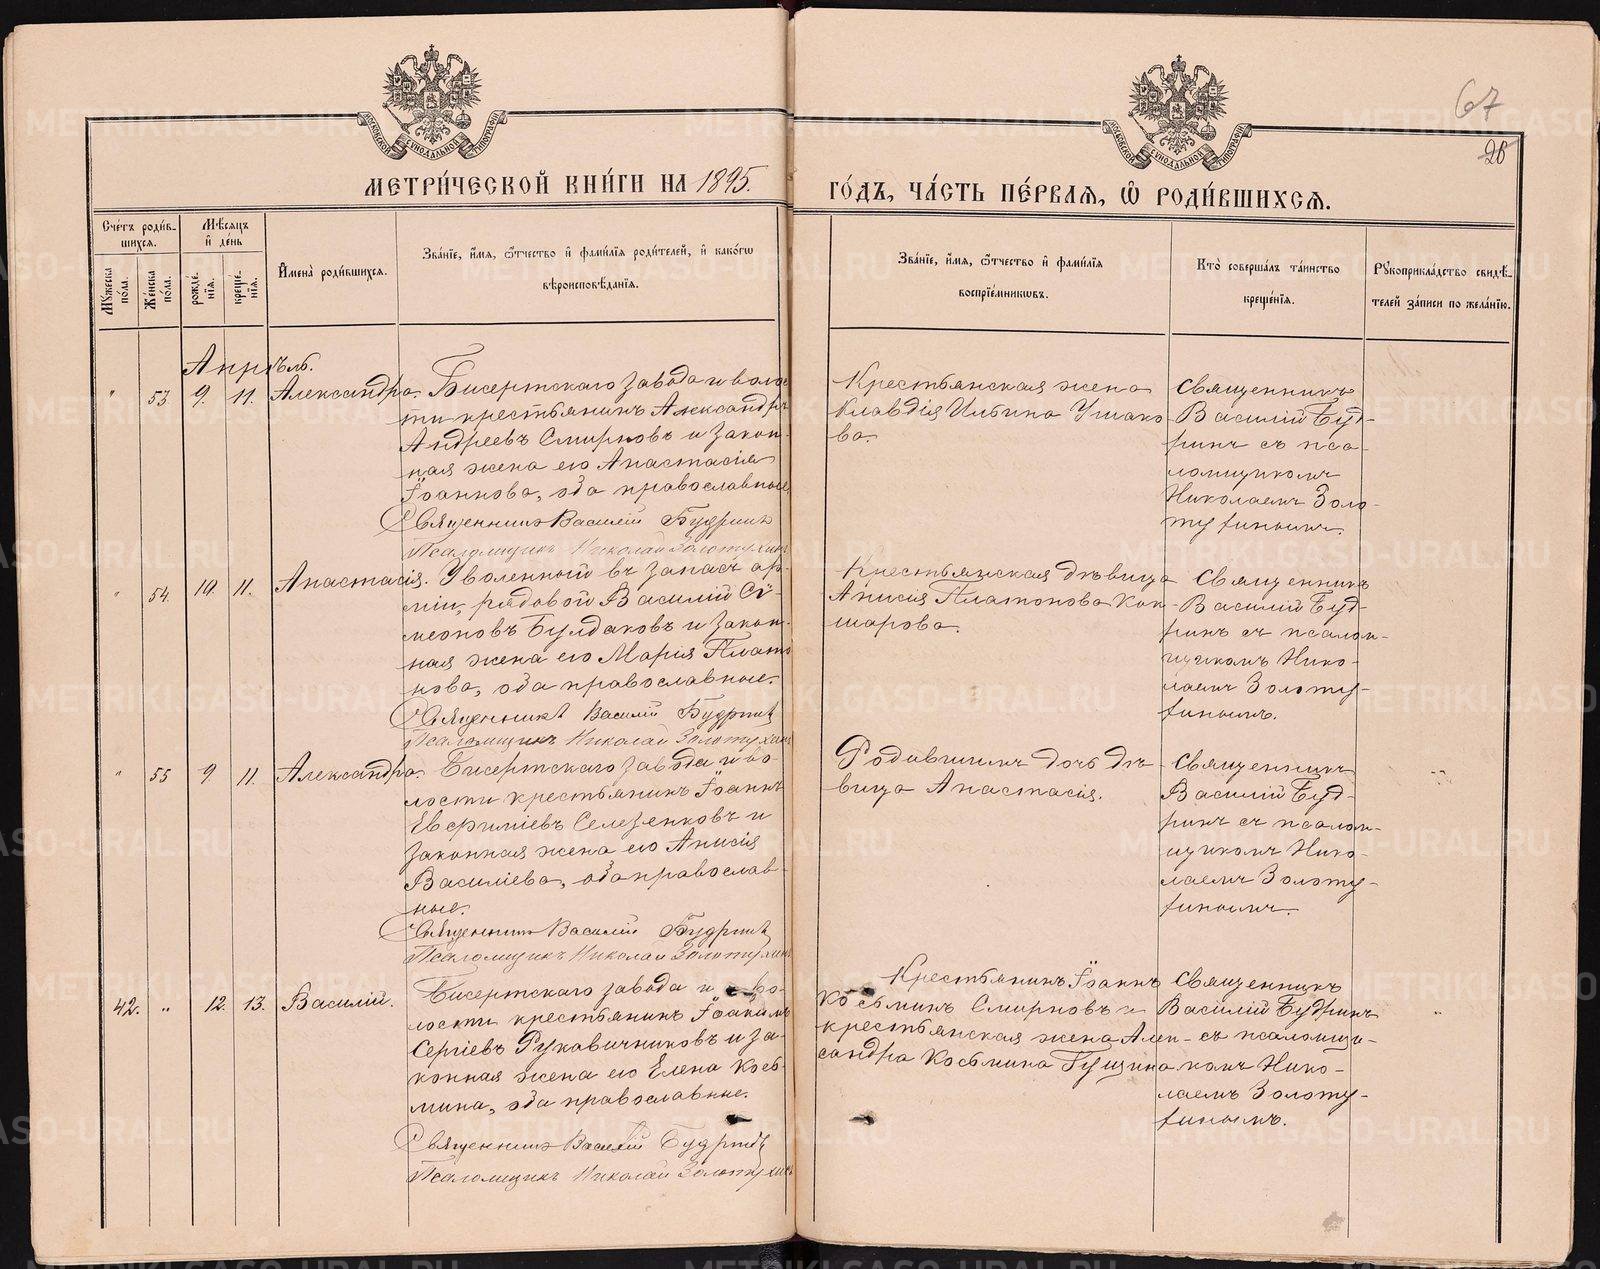 67
26
МЕТРИ́ЧЕСКОЙ КНИ́ГИ НА 1895.
ГО́ДЪ, ЧА́СТЬ ПЕ́РВАЯ, Ѽ РОДИ́ВШИХСЯ.
Сче́тъ роди́в-
шихся.
Мѣ́сяцъ
и҆ де́нь
Мꙋ́жеска
по́ла.
Же́нска
по́ла.
рожде́-
нїѧ.
креще́-
нїѧ.
И҆мена̀ роди́вшихся.
Зва́нїе, и҆́мя, ѻ҆́тчество и҆ фами́лїя роди́телей, и҆ како́гѡ
вѣроисповѣ́данїя.
Зва́нїе, и҆́мя, ѻ҆́тчество и҆ фами́лїя
воспрїе́мникѡвъ.
Кто̀ соверша́лъ та́инство
креще́нїя.
Рꙋкоприкла́дство свидѣ́-
телей за́писи по жела́нїю.
Апрѣль.
" 53 9. 11. Александра.
Бисертскаго завода и волос
ти крестьянинъ Александръ
Андреевъ Смирновъ и закон-
ная жена его Анастасія
Іоаннова, оба православные,
Священникъ Василій Будринъ
Псаломщикъ Николай Золотухинъ
Крестьянская жена
Клавдія Ильина Ушако
ва.
Священникъ
Василій Буд-
ринъ съ пса-
ломщикомъ
Николаемъ Золо-
тухинымъ.
" 54. 10. 11. Анастасія.
Уволенный въ запасъ ар-
міи, рядовой Василій Сѵ-
меоновъ Булдаковъ и закон-
ная жена его Марія Плато
нова, оба православные.
Священникъ Василій Будринъ
Псаломщикъ Николай Золотухинъ
Крестьянская дѣвица
Анисія Платонова Кок-
шарова.
Священникъ
Василій Буд-
ринъ съ псалом-
щикомъ Нико-
лаемъ Золоту-
хинымъ.
" 55 9. 11. Александра.
Бисертскаго завода и во-
лости крестьянинъ Іоаннъ
Евфиміевъ Селезенковъ и
законная жена его Анисія
Василіева, оба православ-
ные.
Священникъ Василій Будринъ
Псаломщикъ Николай Золотухинъ
Родившихъ дочь дѣ-
вица Анастасія.
Священникъ
Василій Буд-
ринъ съ псалом-
щикомъ Нико-
лаемъ Золоту-
хинымъ.
42. " 12. 13. Василій.
Бисертскаго завода и во-
лости крестьянинъ Іоакимъ
Сергіевъ Рукавичниковъ и за-
конная жена его Елена Козь-
мина, оба православные.
Священникъ Василій Будринъ
Псаломщикъ Николай Золотухинъ
Крестьянинъ Іоаннъ
Косьминъ Смирновъ и
крестьянская жена Алек-
сандра Косьмина Гущина
Священникъ
Василій Будринъ
съ псаломщи-
комъ Нико-
лаемъ Золоту-
хинымъ.
METRIKI.GASO-URAL.RU